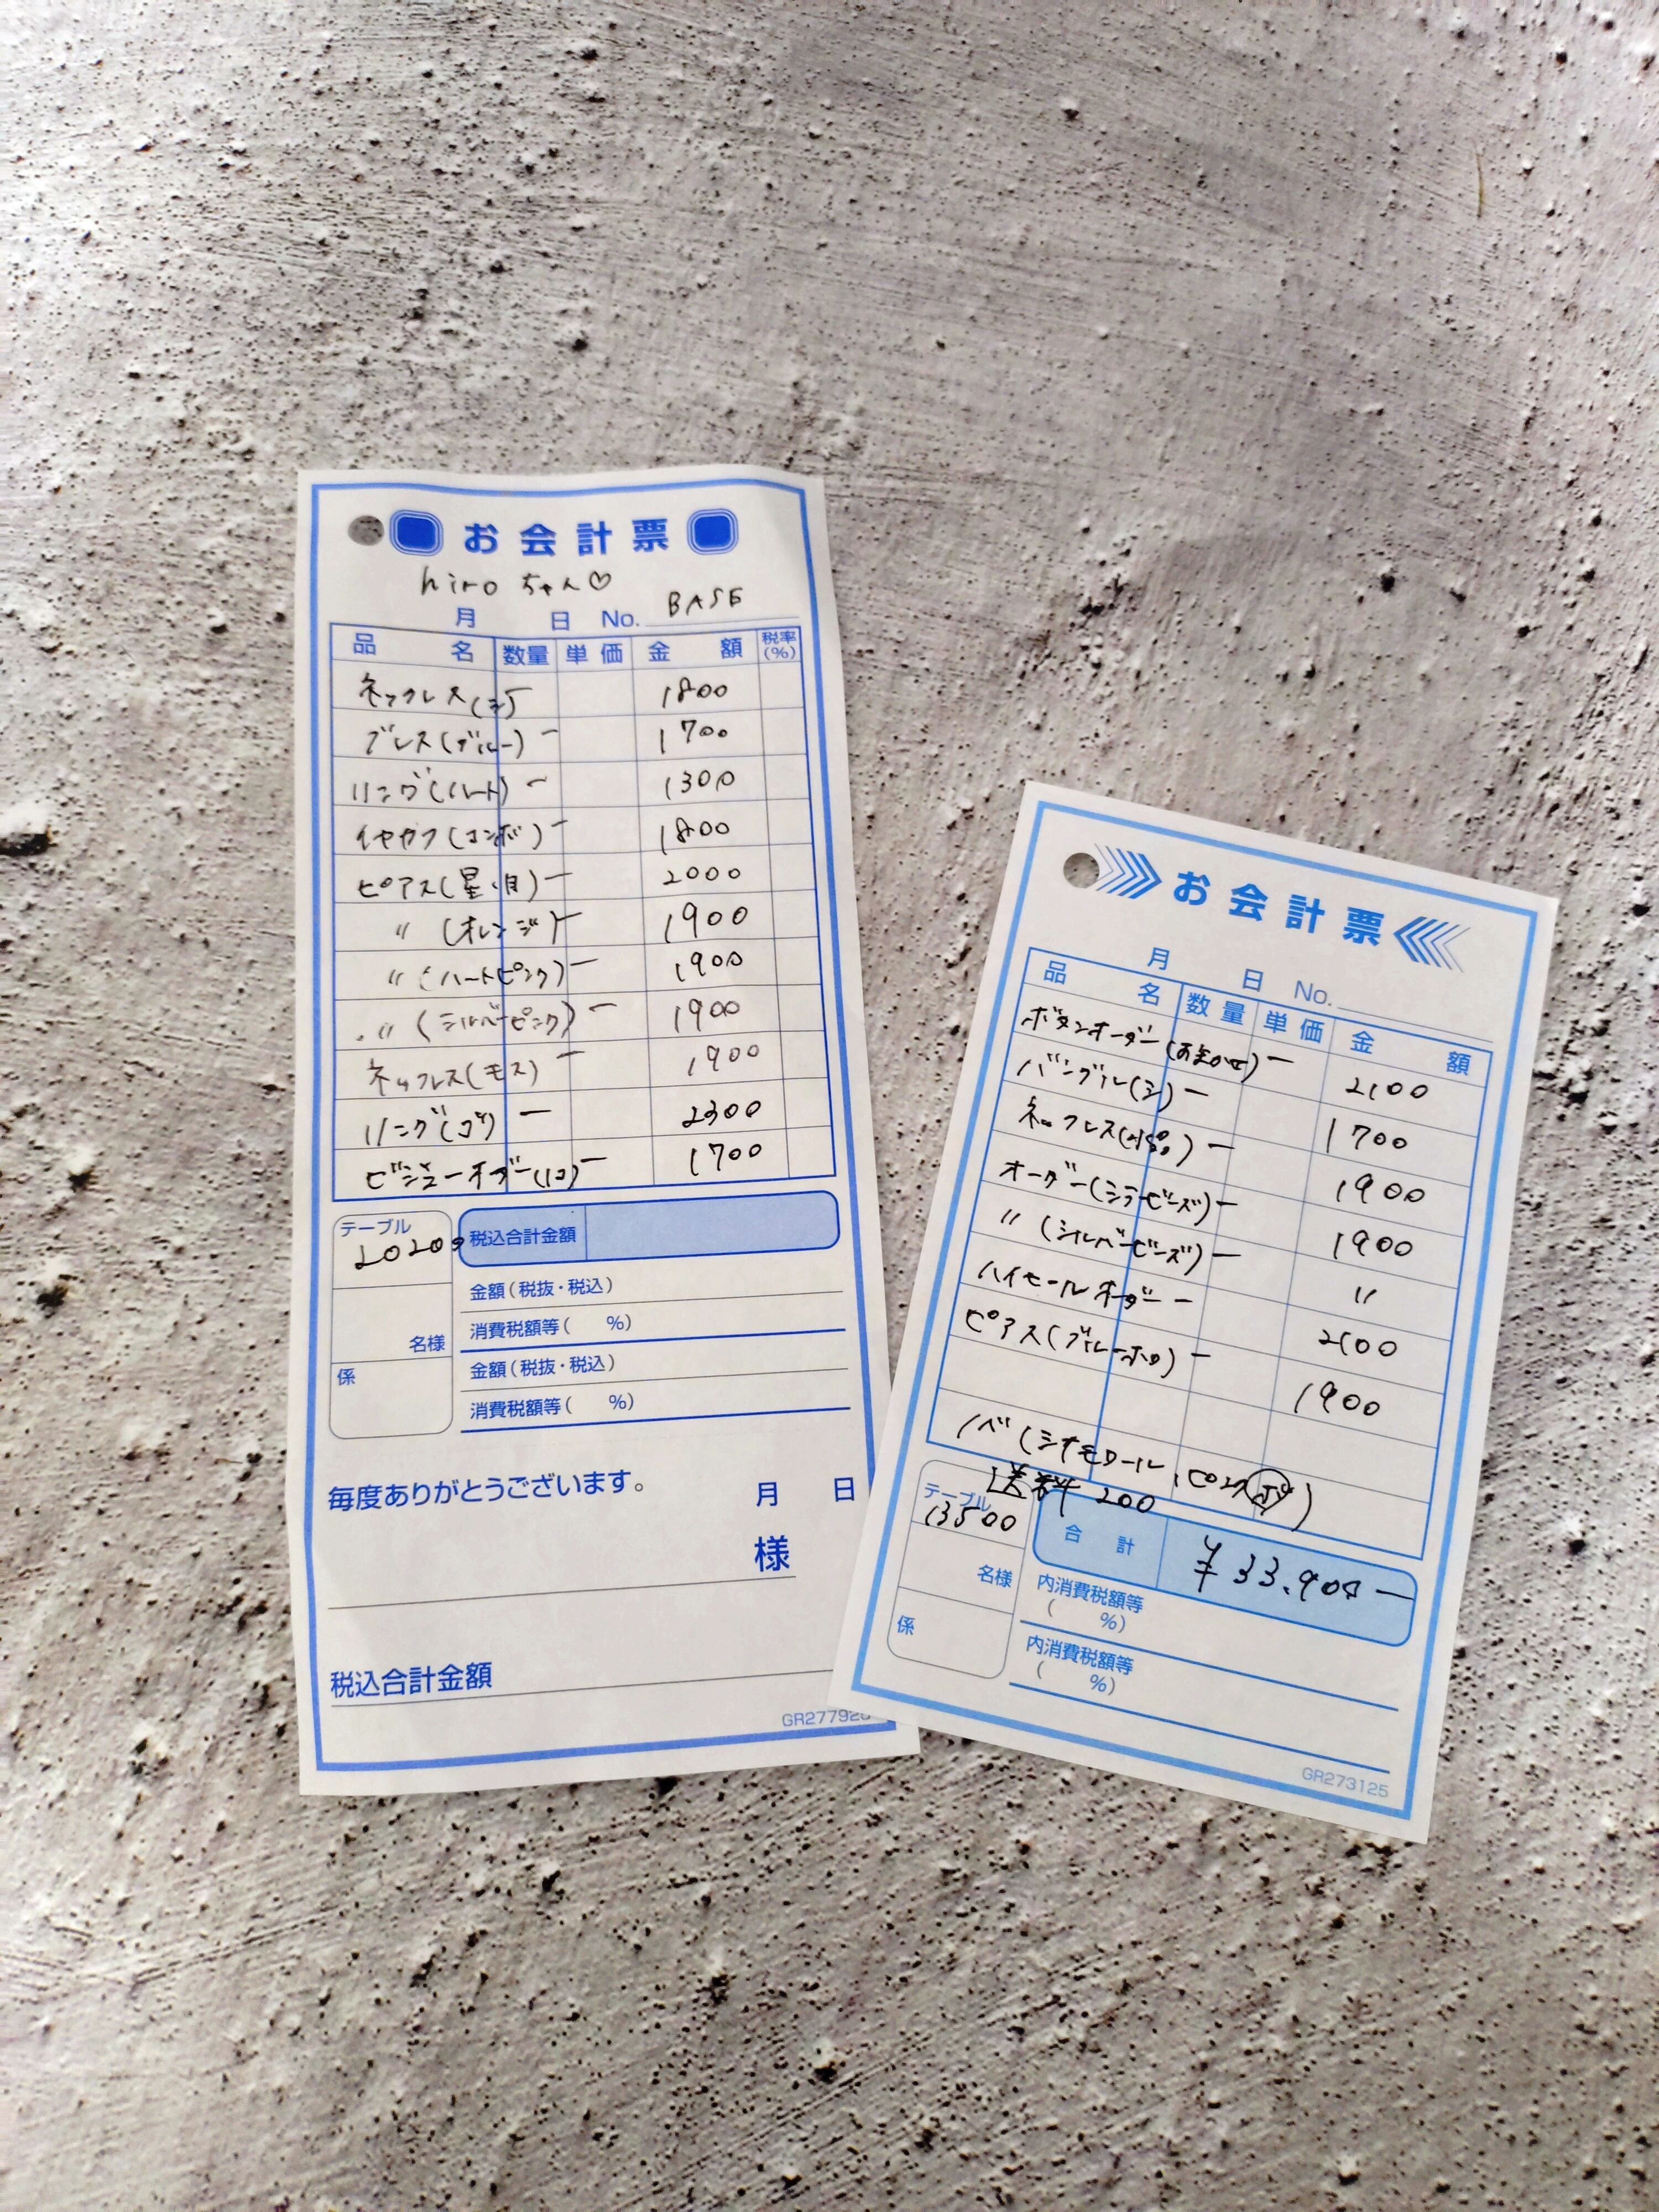 お会計票
hiro ちゃん♡
月 日 No. BASE
品名 数量 単価 金額 税率(%)
ネックレス(シ) 1800
ブレス(ブルー) ー 1700
リング(ハート) ー 1300
イヤカフ(コンボ) ー 1800
ピアス(星、月) ー 2000
〃 (オレンジ) ー 1900
〃 (ハートピンク) ー 1900
〃 (シルバーピンク) ー 1900
ネックレス(モス) ー 1900
リング(ゴ) ー 2300
ビジューオーダー(1コ) ー 1700
テーブル 20200
税込合計金額
金額(税抜・税込)
名様 消費税額等( %)
係 金額(税抜・税込)
消費税額等( %)
毎度ありがとうございます。 月 日
様
税込合計金額
お会計票
月 日 No.
品名 数量 単価 金額
ボタンオーダー(おまかせ) ー 2100
バングル(シ) ー 1700
ネックレス ー 1900
オーダー(シラービーズ) ー 1900
〃 (シルバービーズ) ー 〃
ハイセールオーダー ー 2100
ピアス(ブルーホロ) ー 1900
ノベ(シナモロール、ピンク)
送料 200
テーブル 13500
合計 ¥33.900ー
名様 内消費税額等
( %)
係 内消費税額等
( %)
GR273125